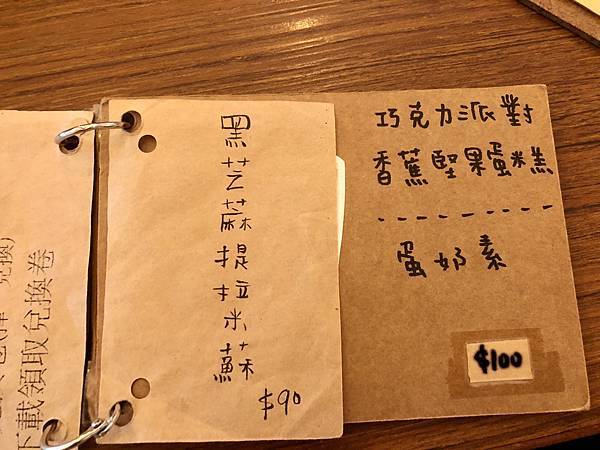 下載領取兌換卷
黑芝蔴提拉米蘇
$90
巧克力派對
香蕉堅果蛋糕
蛋奶素
$100